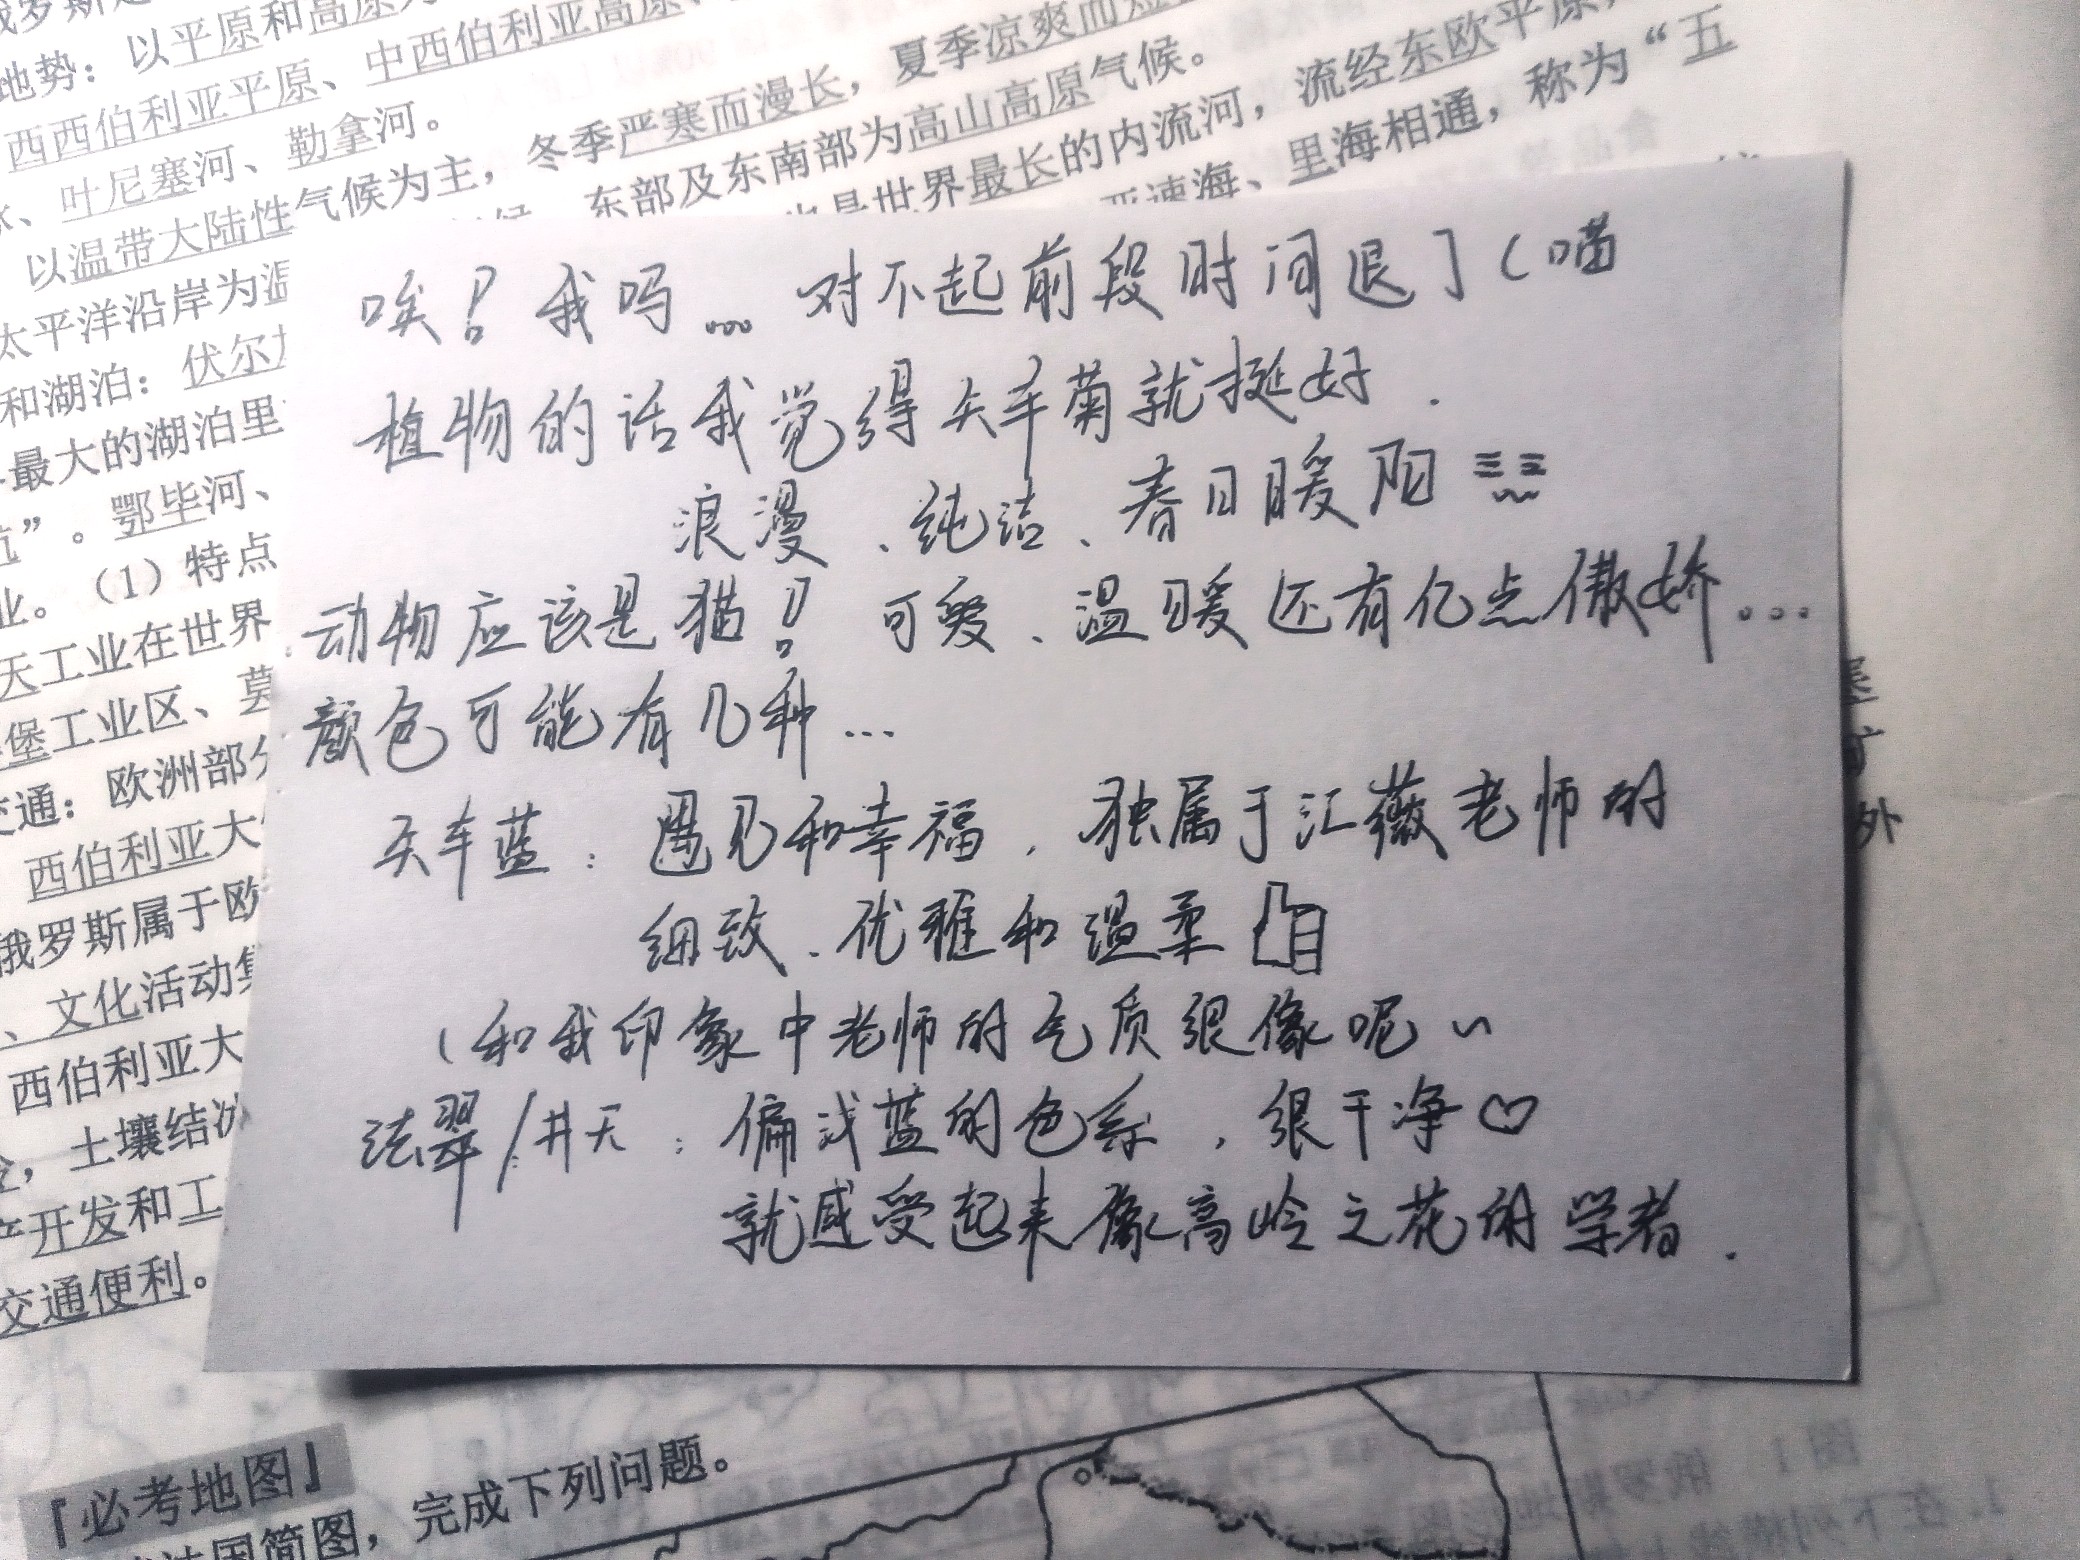 地势：以平原和高原为
西西伯利亚平原、中西伯利亚高原、
、叶尼塞河、勒拿河。
以温带大陆性气候为主，冬季严寒而漫长，夏季凉爽而短
东部及东南部为高山高原气候。
太平洋沿岸为温
世界最长的内流河，流经东欧平原，
和湖泊：伏尔加
亚速海、里海相通，称为“五
最大的湖泊里
”。鄂毕河、
业。（1）特点
天工业在世界
堡工业区、莫
交通：欧洲部分
西伯利亚大
俄罗斯属于欧
、文化活动集
西伯利亚大
，土壤结冰
开发和工
交通便利。
唉！我吗。。。 对不起前段时间退了（喵
植物的话我觉得矢车菊就挺好．
浪漫、纯洁、春日暖阳
动物应该是猫！ 可爱、温暖还有亿点傲娇…
颜色可能有几种…
矢车蓝：遇见和幸福，独属于汇薇老师的
细致、优雅和温柔
（和我印象中老师的气质很像呢~
法翠/井天：偏浅蓝的色系，很干净♡
就感受起来像高岭之花的学者．
外
『必考地图』
国简图，完成下列问题。